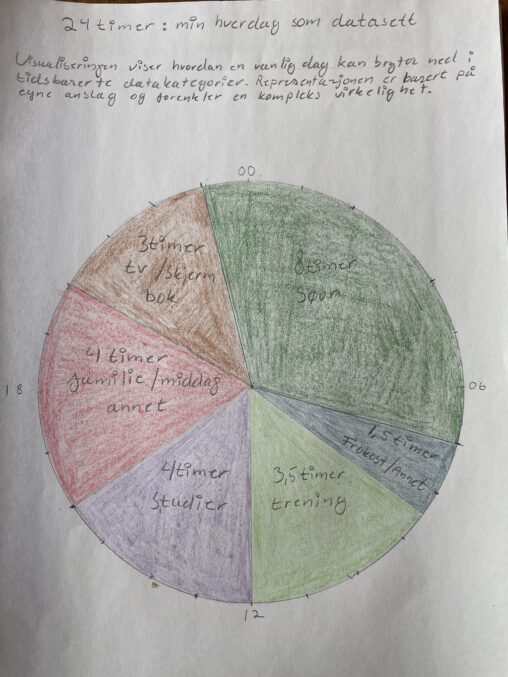 24 timer : min hverdag som datasett
Visualiseringen viser hvordan en vanlig dag kan brytes ned i
tidsbaserte datakategorier. Representasjonen er basert på
egne anslag og forenkler en kompleks virkelighet.
00
3 timer
tv / skjerm
bok
8 timer
søvn
4 timer
familie / middag
annet
18
06
1,5 timer
Frokost / Annet
4 timer
studier
3,5 timer
trening
12